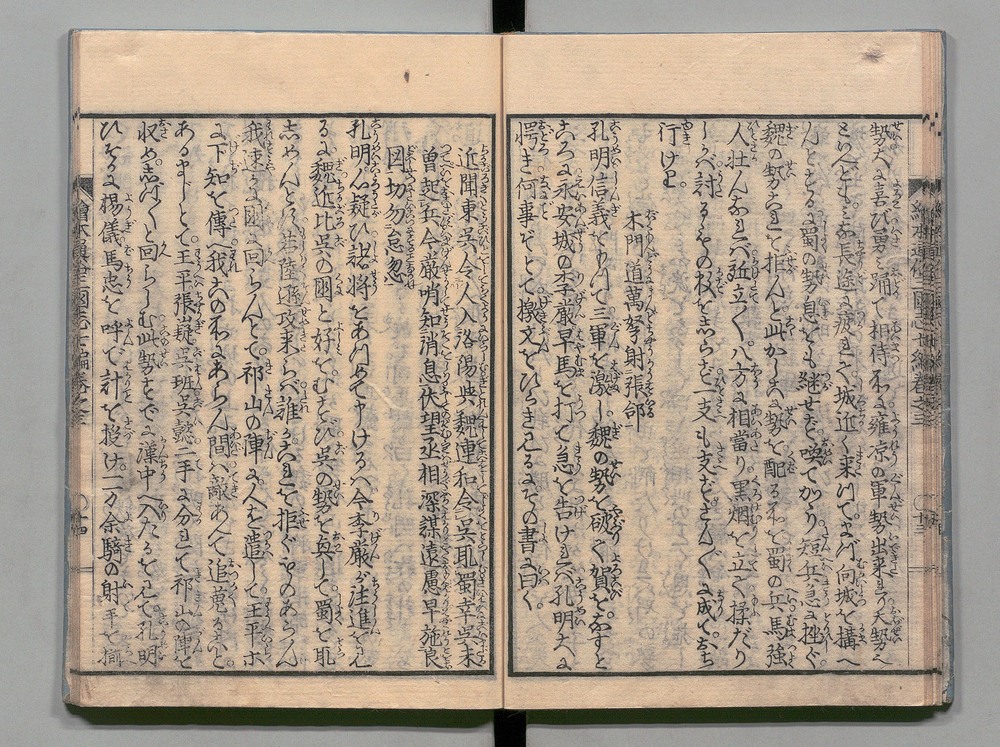 勢大に喜び勇み踊て相待所に雍凉の軍勢出来りて大勢
といへども長途に疲れて城近く来りてまづ向城を搆へ
んとするを蜀の勢息をも継せず喚てかゝり短兵急に挫ぐ
魏の勢これを拒んと此かしこに勢を配る所を蜀の兵馬強く
人壮んなれバ甦立て八方に相當り黒烟を立て揉だり
しかバ討るゝその数をしらず一支も支ずさん〴〵に成ておち
行けり。
木門道萬弩射張郃
孔明信義を以て三軍を激し魏の勢を破て賀をなすと
ころに永安城の李嚴早馬を打て急を告けれバ孔明大に
愕き何事ぞとて檄文をひらき見るにその書に曰く
近聞東呉令人入洛陽與魏連和令呉取蜀幸呉未
曽起兵今嚴哨知消息伏望丞相深謀遠慮早施良
図切勿怠忽
孔明心疑ひ諸将をあつめて申けるハ今李嚴が注進をみ
るに魏近比呉の國と好をむすび呉の勢を興して蜀を取
しめんとするよし陸遜攻来らバ誰かこれを拒ぐものあらん
我速に國に回らんとて。祁山の陣に人を遣して王平ホ
に下知を傳へ我この所にあらん間ハ敵あへて追蒐ること
あるまじとて。王平張嶷呉班呉懿二手に分れて祁山の陣を
収めしづ〳〵と回らしむ此勢すでに漢中へ入たるをみて孔明
ひそかに楊儀馬忠を呼で計を授け一万余騎の射手を揃